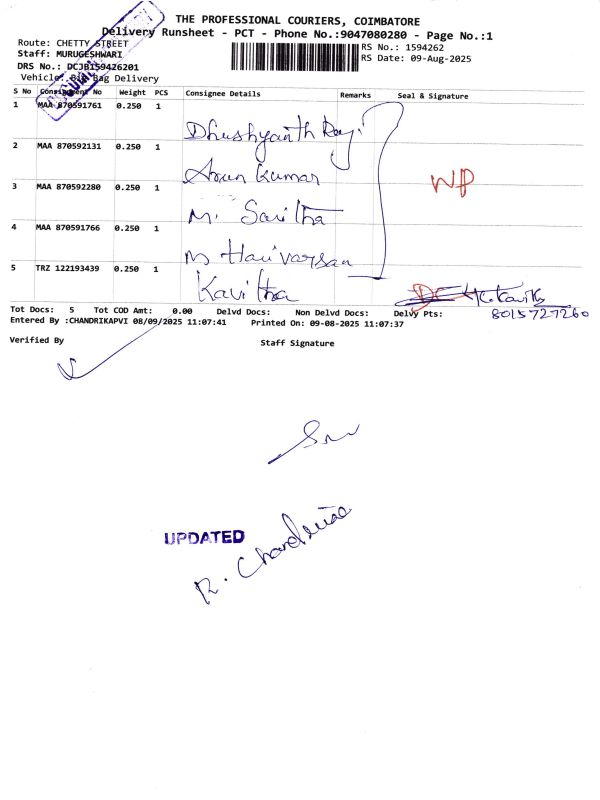 THE PROFESSIONAL COURIERS, COIMBATORE
Delivery Runsheet - PCT - Phone No.:9047080280 - Page No.:1
Route: CHETTY STREET
RS No.: 1594262
Staff: MURUGESHWARI
RS Date: 09-Aug-2025
DRS No.: DCJB159426201
Vehicle: Big Bag Delivery
S No Consignment No Weight PCS Consignee Details Remarks Seal & Signature
1 MAA 870591761 0.250 1 Dhushyanth Raj
2 MAA 870592131 0.250 1 Arun Kumar
WP
3 MAA 870592280 0.250 1 M. Saritha
4 MAA 870591766 0.250 1 M Harivarsan
5 TRZ 122193439 0.250 1 Kavitha
K. Kavitha
8015727260
Tot Docs: 5 Tot COD Amt: 0.00 Delvd Docs: Non Delvd Docs: Delvy Pts:
Entered By :CHANDRIKAPVI 08/09/2025 11:07:41 Printed On: 09-08-2025 11:07:37
Verified By Staff Signature
UPDATED
R. Chandrika